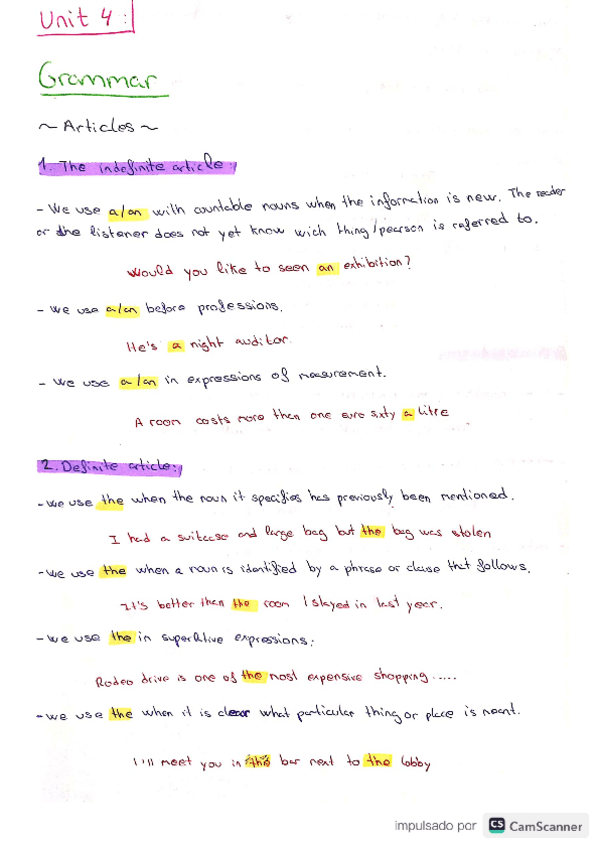 Unit 4:
Grammar
~ Articles ~
1. The indefinite article:
- We use a/an with countable nouns when the information is new. The reader
or the listener does not yet know wich thing/pearson is referred to.
Would you like to seen an exhibition?
- We use a/an before professions.
He's a night auditor.
- We use a/an in expressions of measurement.
A room costs more then one euro sixty a litre
2. Definite article:
- we use the when the noun it specifies has previously been mentioned.
I had a suitcase and large bag but the bag was stolen
- we use the when a noun is identified by a phrase or clause that follows.
It's better than the room I stayed in last year.
- we use the in superlative expressions:
Rodeo drive is one of the most expensive shopping.....
- we use the when it is clear what particular thing or place is meant.
I'll meet you in the bar next to the lobby
impulsado por CS CamScanner